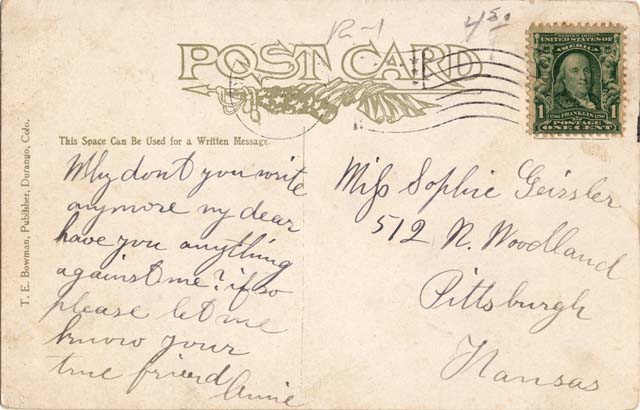 POST CARD
4 50
UNITED STATES OF
AMERICA
1 FRANKLIN 1
POSTAGE
ONE CENT
T. E. Bowman, Publisher, Durango, Colo.
This Space Can Be Used for a Written Message.
Why dont you write
anymore my dear
have you anything
against me? if so
please let me
know your
true friend Annie
Miss Sophie Geissler
512 N. Woodland
Pittsburgh
Kansas